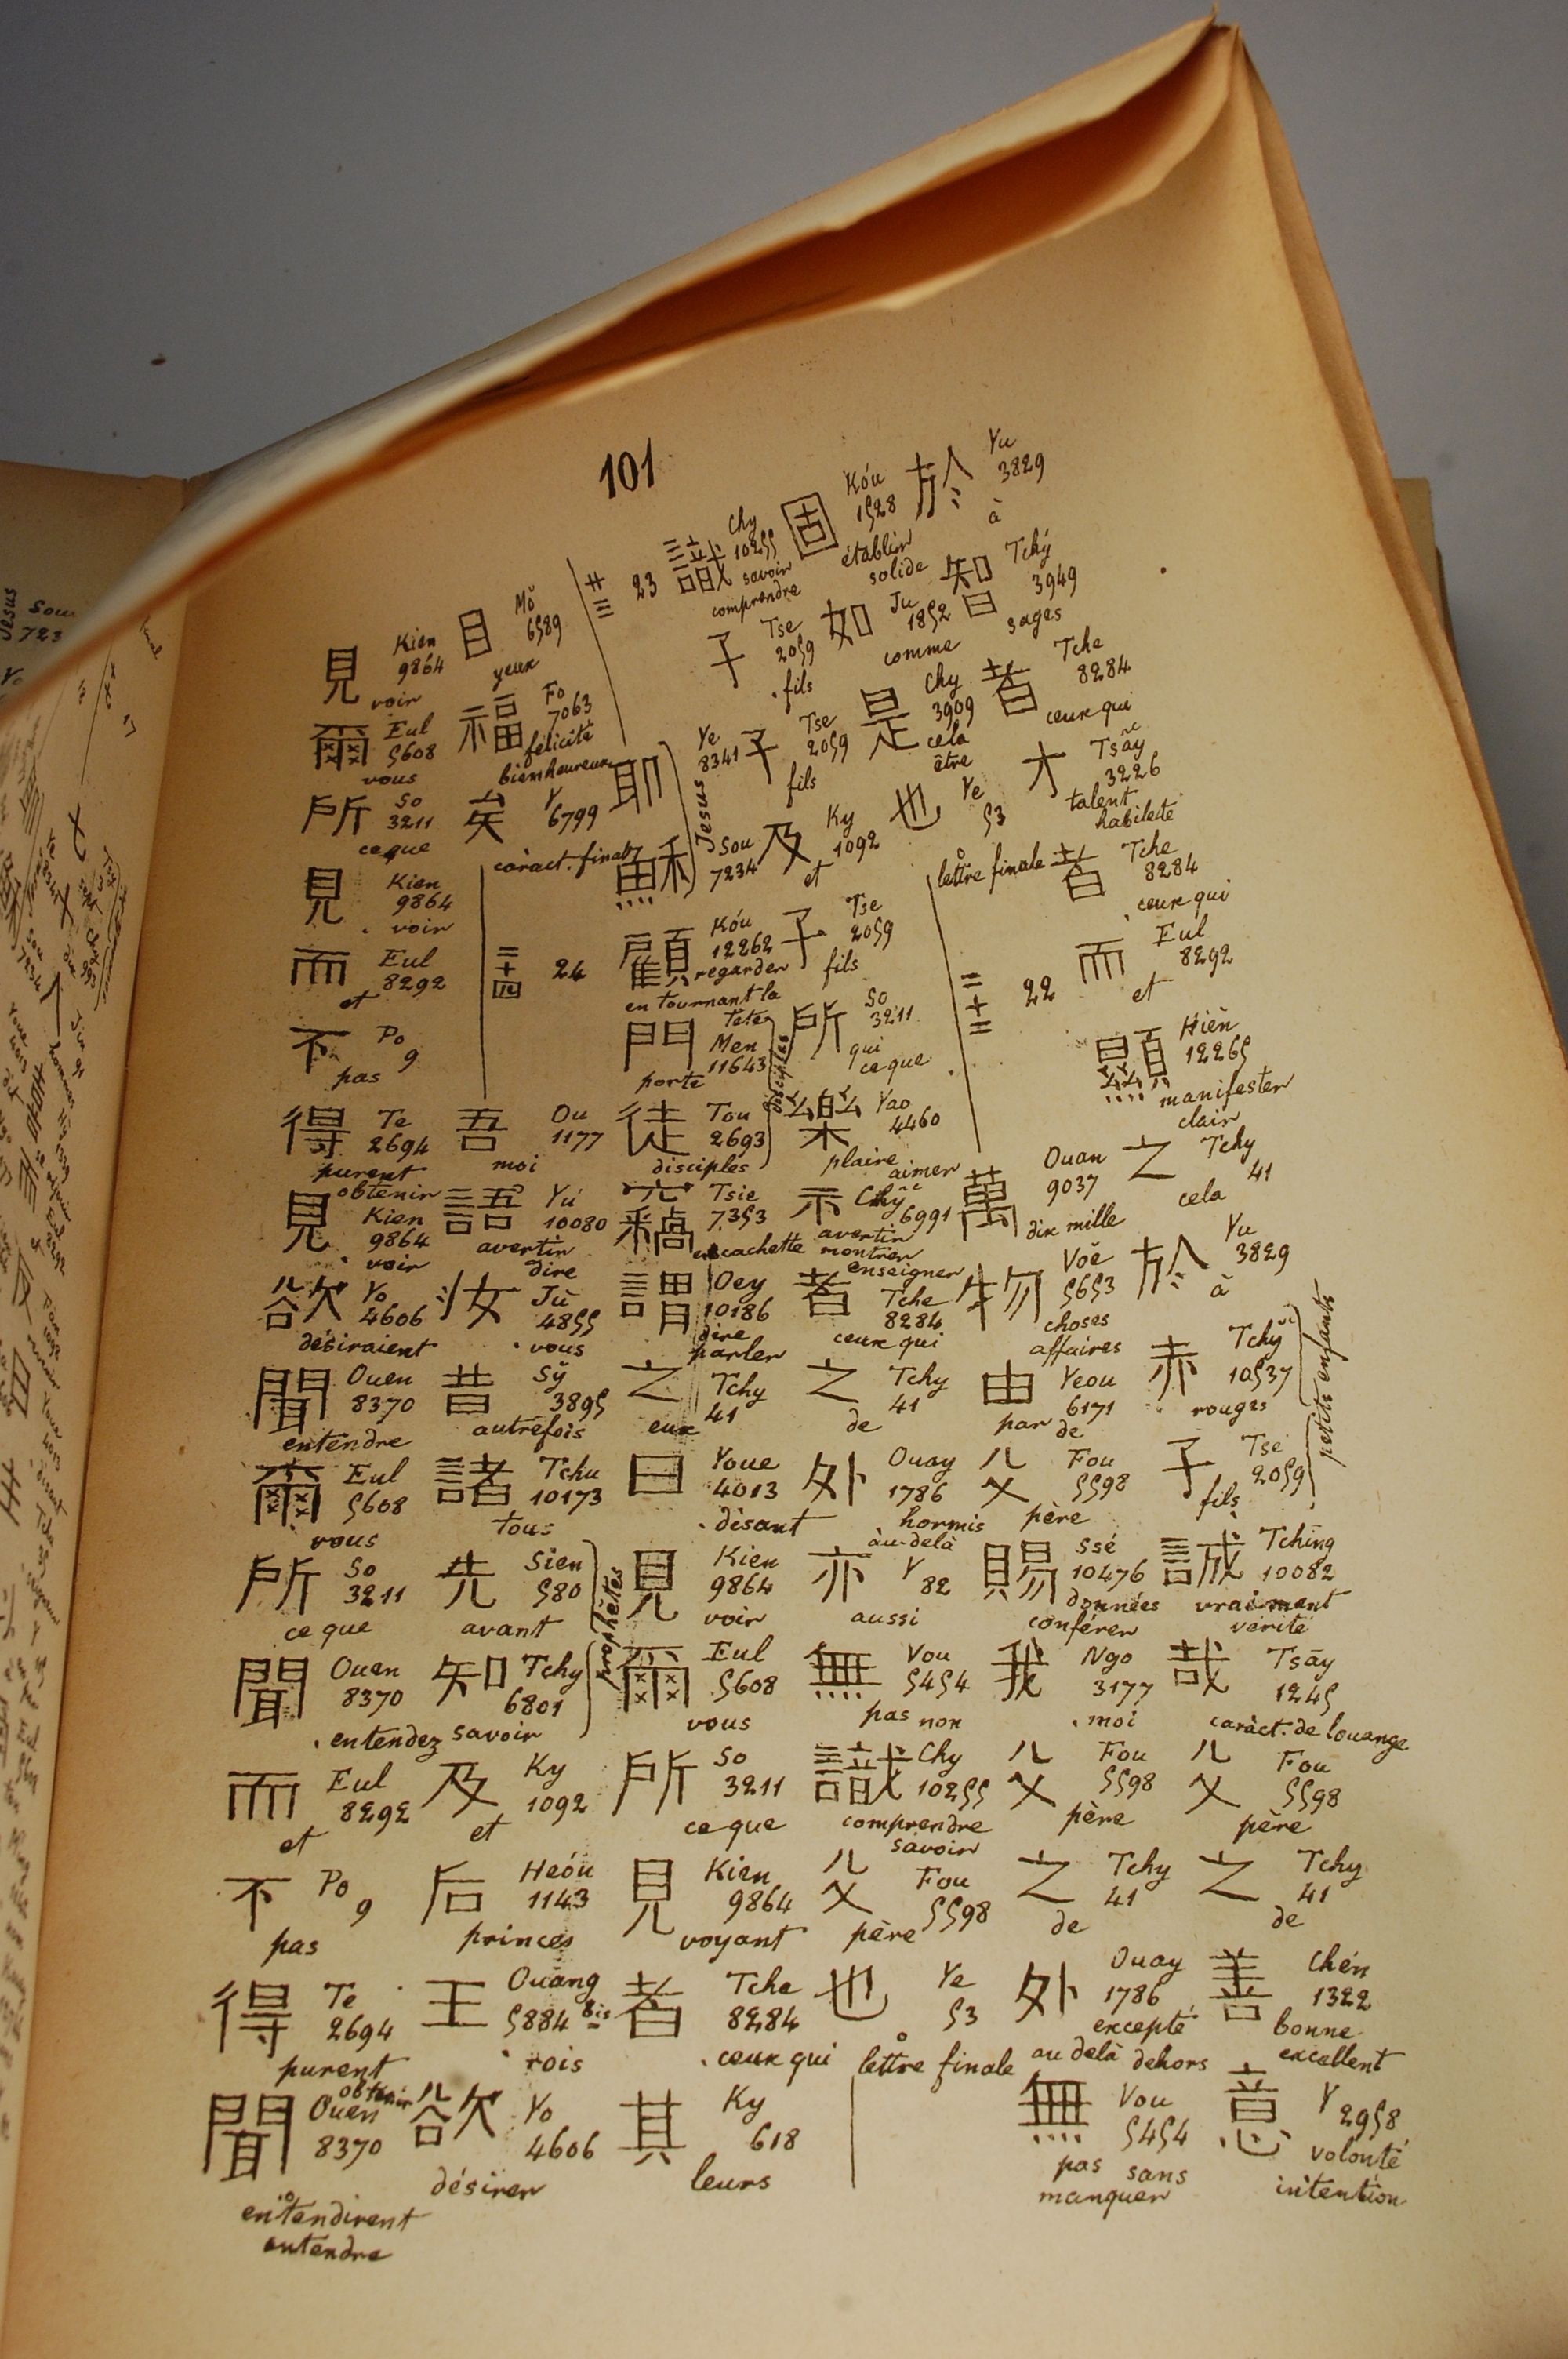 101
於 Yu
3829
à
智 Tchý
3949
sages
者 Tche
8284
ceux qui
才 Tsây
3226
talent
habileté
者 Tche
8284
ceux qui
而 Eul
8292
et
顯 Hièn
12265
manifester
clair
之 Tchy
41
cela
於 Yu
3829
à
赤 Tchy
10537
rouges
petits enfants
子 Tse
2059
fils
誠 Tching
10082
vraiment
vérité
哉 Tsāy
1245
caràct. de louange
父 Fou
5598
père
之 Tchy
41
de
善 Chén
1322
bonne
excellent
意 Y
2958
volonté
intention
固 Kóu
1528
établir
solide
如 Ju
1852
comme
是 Chy
3909
cela
être
也 Ye
53
lettre finale
二十二 22
萬 Ouan
9037
dix mille
物 Voě
5653
choses
affaires
由 Yeou
6171
par de
父 Fou
5598
père
賜 Ssé
10476
données
conférer
我 Ngo
3177
moi
父 Fou
5598
père
之 Tchy
41
de
外 Ouay
1786
excepté
au delà dehors
無 Vou
5454
pas sans
manquer
識 Chy
10255
savoir
comprendre
子 Tse
2059
fils
子 Tse
2059
fils
及 Ky
1092
et
子 Tse
2059
fils
所 So
3211
qui
ce que
樂 Yao
4460
plaire
aimer
示 Chy
6991
avertir
montrer
enseigner
者 Tche
8284
ceux qui
之 Tchy
41
de
外 Ouay
1786
hormis
au-delà
亦 Y
82
aussi
無 Vou
5454
pas non
識 Chy
10255
comprendre
savoir
父 Fou
5598
père
也 Ye
53
lettre finale
廿三 23
耶 Ye
8341
Jesus
穌 Sou
7234
顧 Kóu
12262
regarder
en tournant la
tête
門 Men
11643
porte
disciples
徒 Tou
2693
disciples
竊 Tsie
7353
en cachette
謂 Oey
10186
dire
parler
之 Tchy
41
eux
曰 Youe
4013
disant
見 Kien
9864
voir
爾 Eul
5608
vous
所 So
3211
ce que
見 Kien
9864
voyant
者 Tche
8284
ceux qui
其 Ky
618
leurs
目 Mŏ
6589
yeux
福 Fo
7063
félicité
bienheureux
矣 Y
6799
caràct. final
二十四 24
吾 Ou
1177
moi
語 Yú
10080
avertir
dire
汝 Jù
4855
vous
昔 Sў
3895
autrefois
諸 Tchu
10173
tous
先 Sien
580
avant
prophètes
知 Tchy
6801
savoir
及 Ky
1092
et
后 Heóu
1143
princes
王 Ouang
5884 Bis
rois
欲 Yo
4606
désirer
見 Kien
9864
voir
爾 Eul
5608
vous
所 So
3211
ce que
見 Kien
9864
voir
而 Eul
8292
et
不 Po
9
pas
得 Te
2694
purent
obtenir
見 Kien
9864
voir
欲 Yo
4606
désiraient
聞 Ouen
8370
entendre
爾 Eul
5608
vous
所 So
3211
ce que
聞 Ouen
8370
entendez
而 Eul
8292
et
不 Po
9
pas
得 Te
2694
purent
obtenir
聞 Ouen
8370
entendirent
entendre